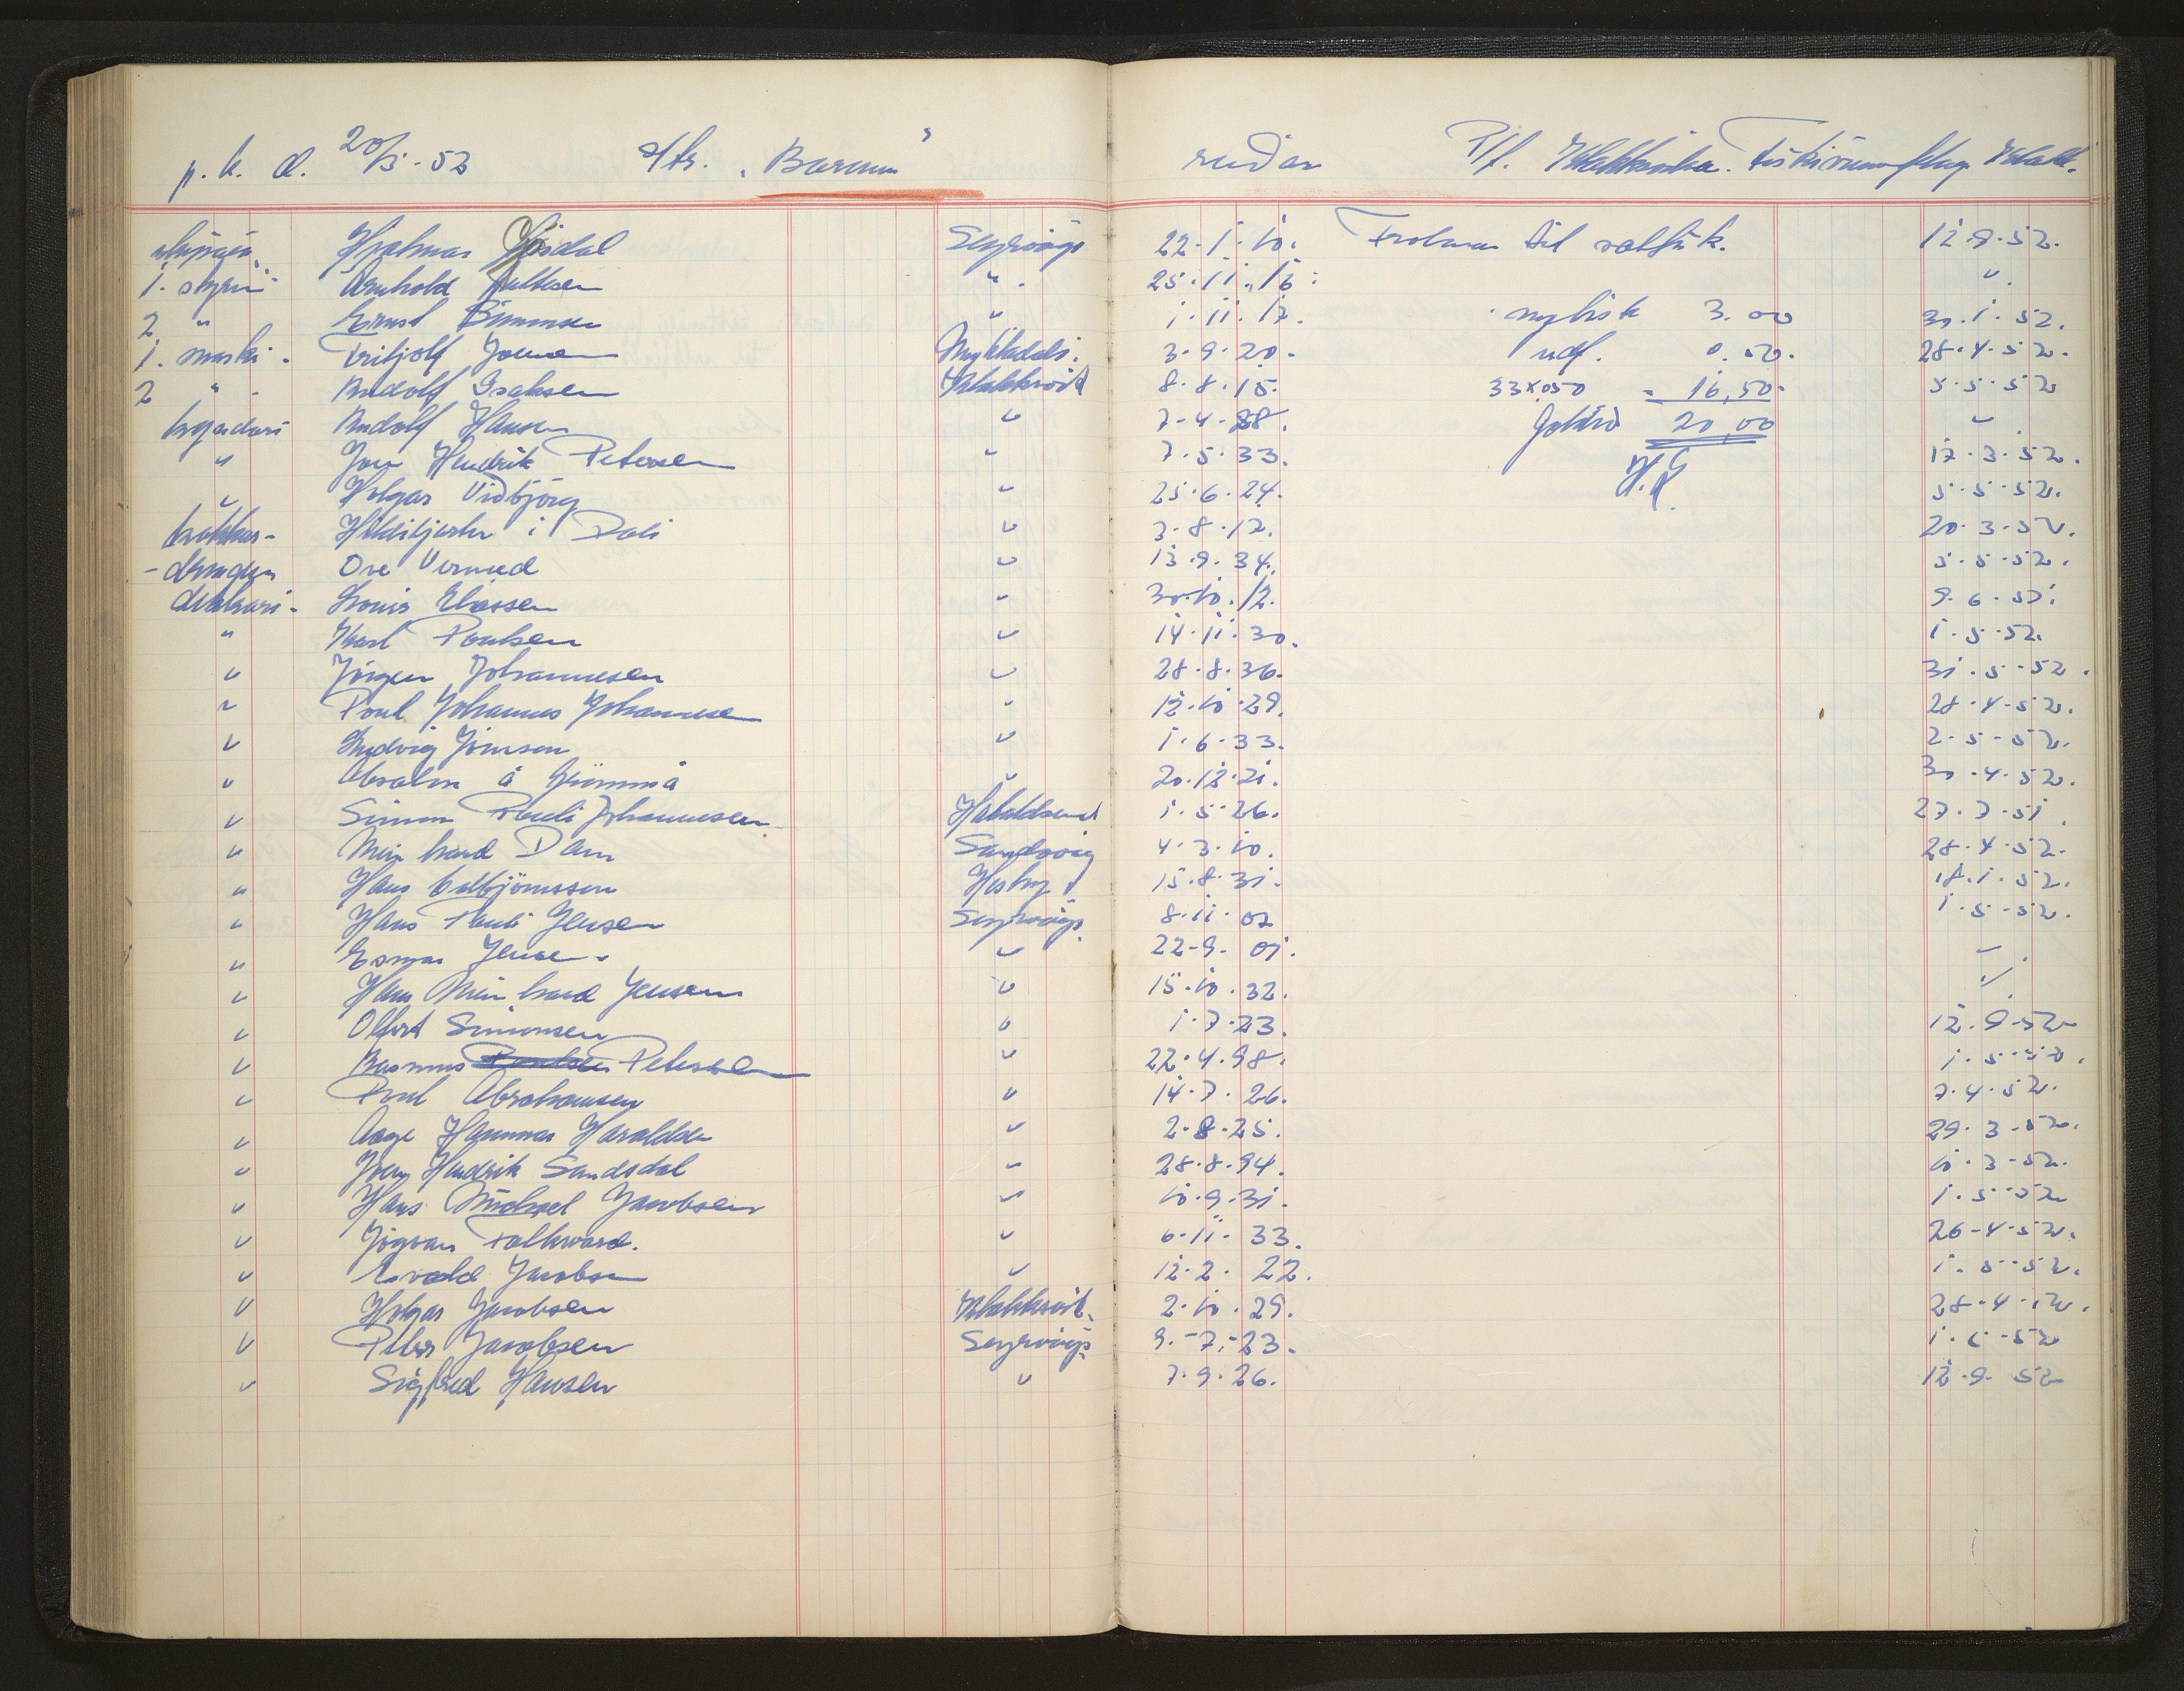 p. k. d. 20/5-52 s/tr. "Barmur" reiðari P/f. Klakksvíkar Fiskivinnufelag Klakk.
skipari Hjalmar Gásdal Seyrvági 22.1.10. Frolman til saltfisk. 12.9.52.
1. stýri- Arnhold Joensen " 25.11.16. "
2 " Ernst Simonsen " 1.11.17. nýtisk 3.00 30.1.52.
1. maski- Fritjolf Joensen 3.9.20. udf. 0.50. 28.4.52.
2 " - Rudolf Isaksen Klakksvík 8.8.15. 33x050 = 16,50. 5.5.52
Rudolf Hansen " 7-4-88. 20,00 "
" Jon Hendrik Petersen " 7.5.33. H.K. 17.3.52.
" Holgar Viðbjørg " 25.6.24. 5.5.52.
kokkur- Hildibjartur í Dali " 3.8.12. 20.3.52.
-drongur Ove Vermed " 13.9.34. 5.5.52.
dekkari- Louis Eliassen " 30.10.12. 9.6.51.
" Karl Poulsen " 14.11.30. 1.5.52.
" Jørgen Johannesen " 28.8.36. 31.5.52.
" Poul Johannus Johannesen " 12.10.29. 28.4.52.
" Ludvig Joensen " 1.6.33. 2.5.52.
" Absalon á " 20.12.21. 30.4.52.
" Simun Pauli Johannesen Haraldsund 1.5.26. 27.7.51.
" Meinhard Dam Sandvig 4.3.10. 28.4.52.
" Hans Kolbjørnsson Husby 15.8.31. 18.1.52.
" Hans Pauli Jensen Seyrvági 8.11.07 1.5.52.
" Esmar Jensen " 22-9-01. "
" Hans Meinhard Jensen " 15.10.32. "
" Olfert Simonsen " 1.7.23. 12.9.52
" Rasmus Poulsen Petersen " 22.4.98. 1.5.52.
" Poul Abrahamsen " 14.7.26. 7.4.52.
" Aage Hammar Haraldsen " 2.8.25. 29.3.52.
" Joen Hendrik Sandsdal " 28.8.94. 10.3.52.
" Hans Michael Jacobsen " 10.9.31. 1.5.52
" Jógvan Falkvard. " 6.11.33. 26-4-52.
" Evald Jacobsen " 12.2.22. 1.5.52.
" Holgar Jacobsen Klakksvík. 2.10.29. 28-4-52.
" Peter Jacobsen Seyrvági 9.-7.-23. 1.5-52
" Sigfred Hansen " 7.9.26. 12.9.52